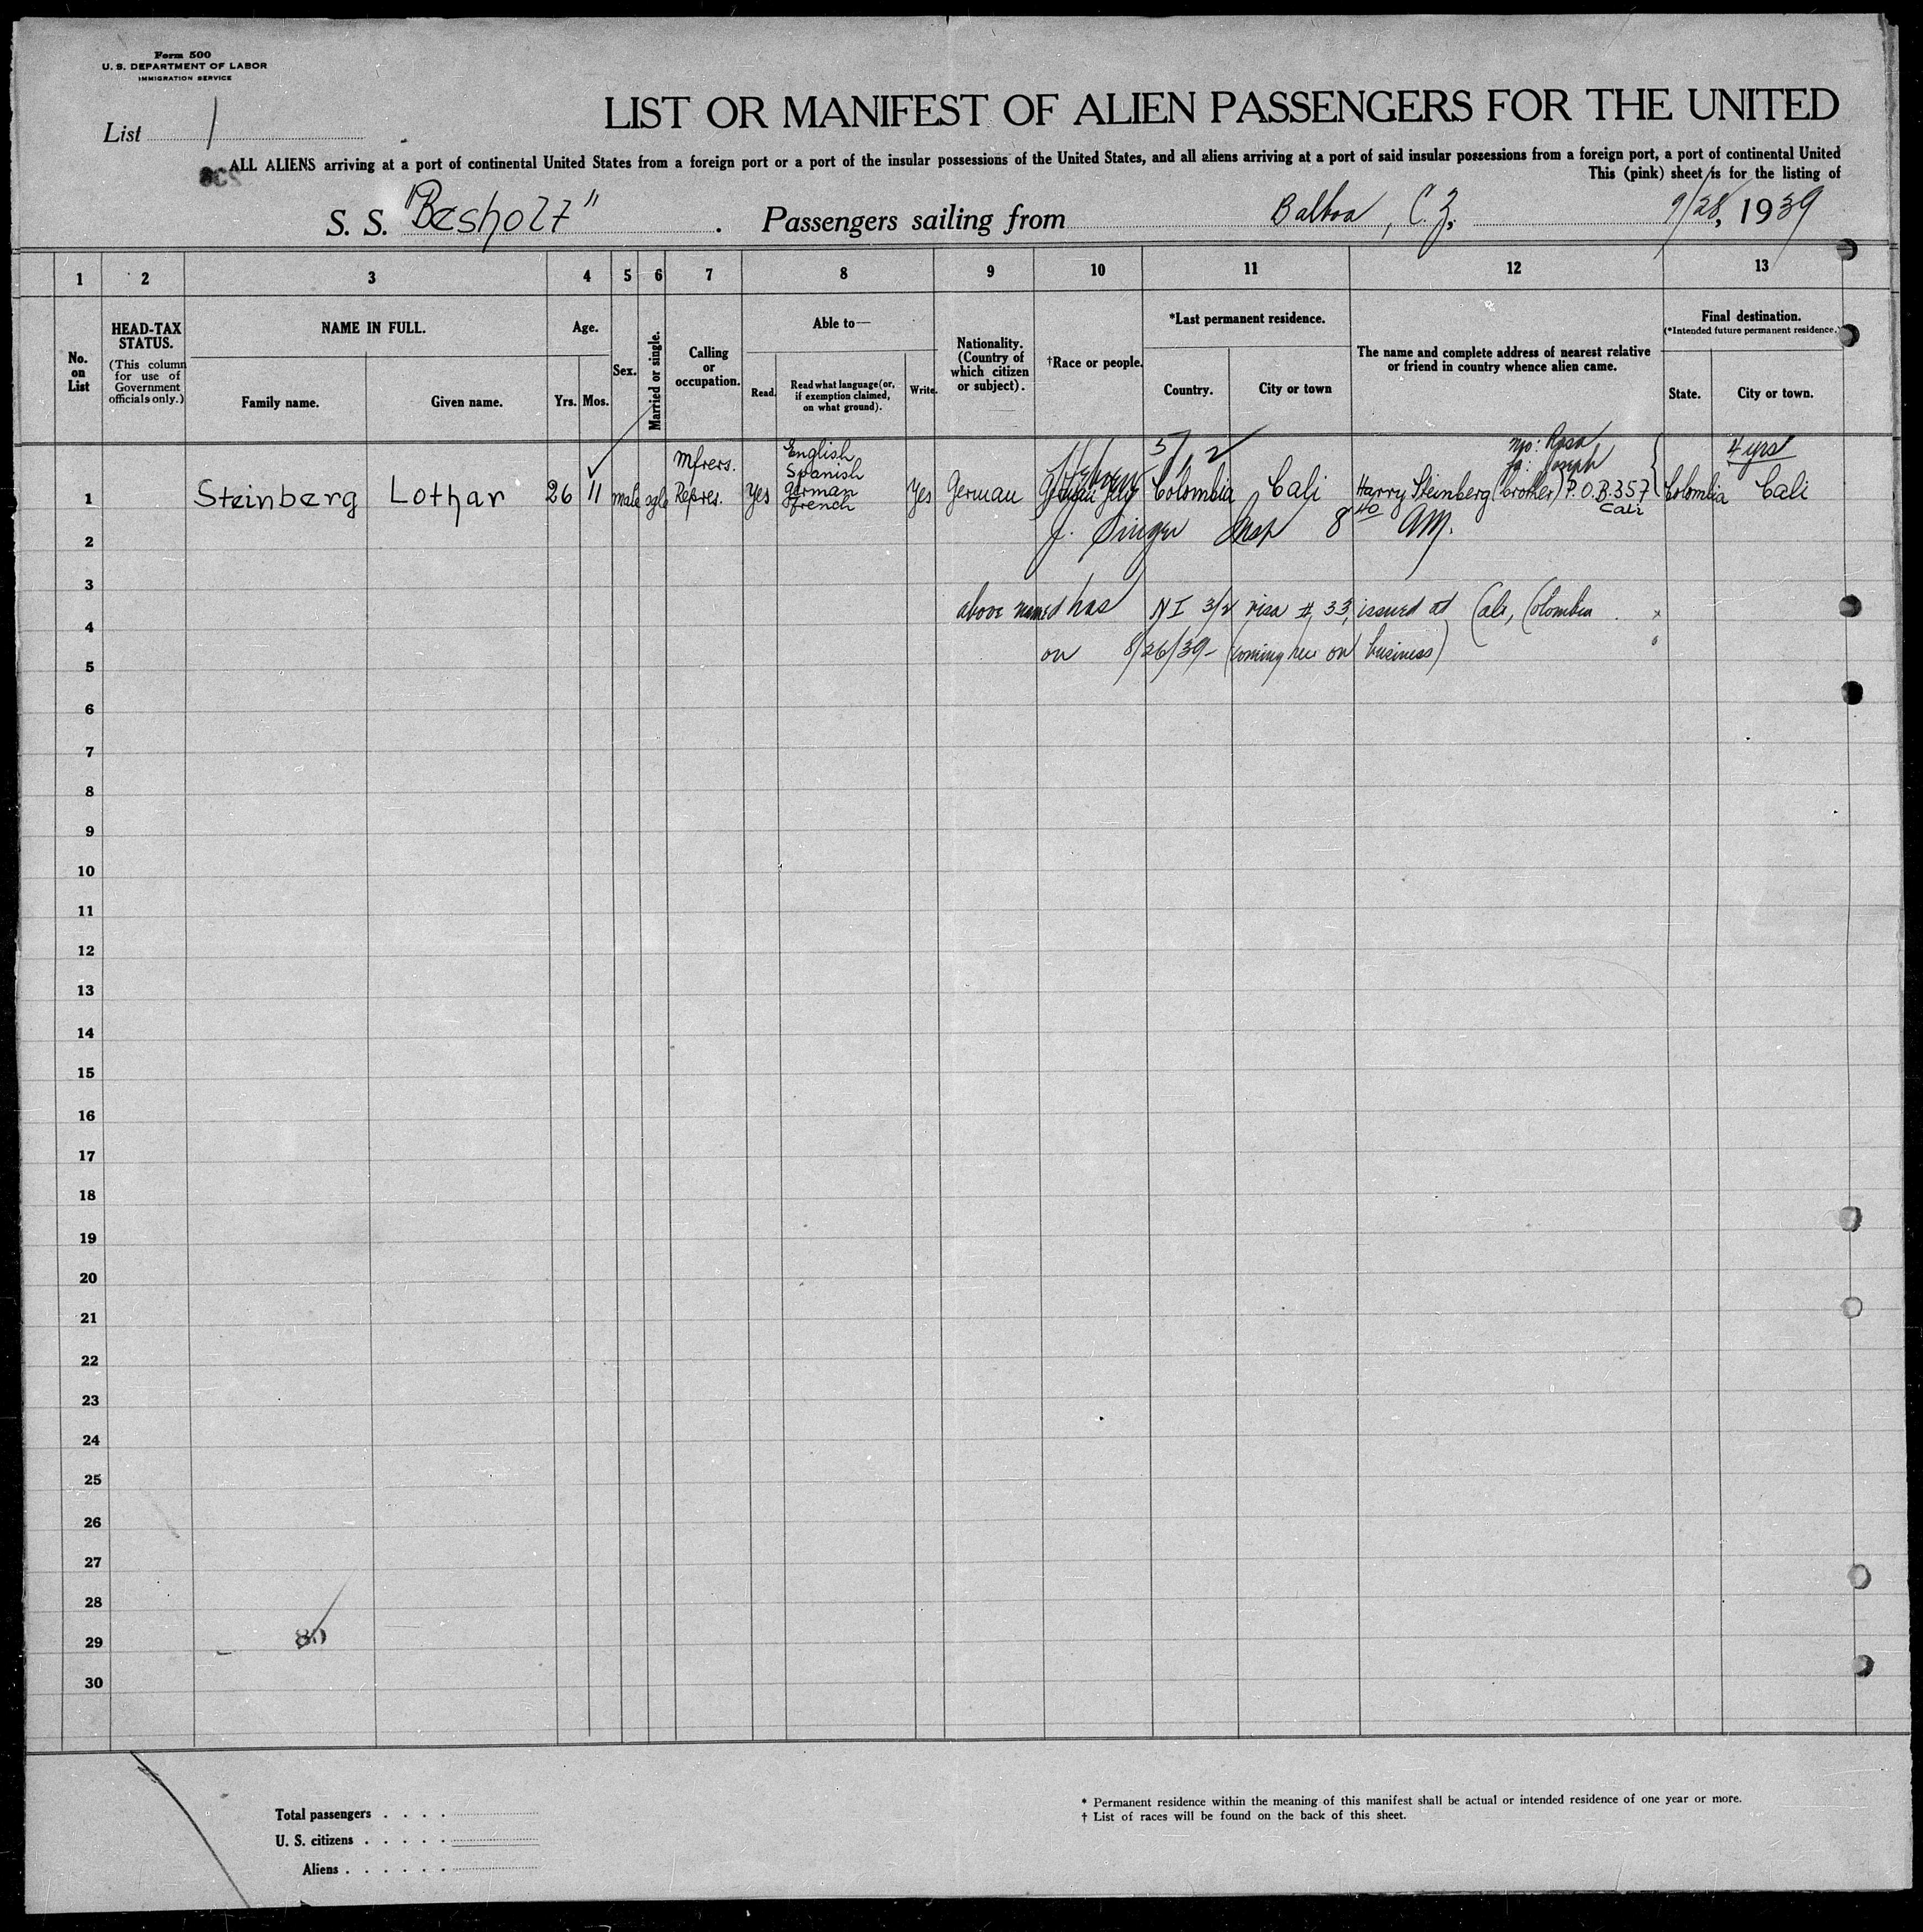 Form 500
U. S. DEPARTMENT OF LABOR
IMMIGRATION SERVICE
List 1
LIST OR MANIFEST OF ALIEN PASSENGERS FOR THE UNITED
ALL ALIENS arriving at a port of continental United States from a foreign port or a port of the insular possessions of the United States, and all aliens arriving at a port of said insular possessions from a foreign port, a port of continental United
This (pink) sheet is for the listing of
S. S. "Besholt" . Passengers sailing from Balboa, C.Z., 9/28, 1939
1 2 3 4 5 6 7 8 9 10 11 12 13
No. on List
HEAD-TAX STATUS.
(This column for use of Government officials only.)
NAME IN FULL.
Family name. Given name.
Age.
Yrs. Mos.
Sex.
Married or single.
Calling or occupation.
Able to—
Read. Read what language (or, if exemption claimed, on what ground). Write.
Nationality. (Country of which citizen or subject).
†Race or people.
*Last permanent residence.
Country. City or town
The name and complete address of nearest relative or friend in country whence alien came.
Final destination.
(*Intended future permanent residence.)
State. City or town.
1 Steinberg Lothar 26 11 male sgle Mfrers. Repres. Yes English Spanish German French Yes German Hebrew 3/2 Colombia Cali Harry Steinberg (brother) P.O.B. 357 Cali mo: Rosa fa: Joseph Colombia Cali 4 yrs
2 J. Singer Insp 8 40 AM.
3
4 above named has NI 3/2 visa # 33, issued at Cali, Colombia
5 on 8/26/39 – (coming here on business)
6
7
8
9
10
11
12
13
14
15
16
17
18
19
20
21
22
23
24
25
26
27
28
29
30
Total passengers . . . .
U. S. citizens . . . . .
Aliens . . . . . .
* Permanent residence within the meaning of this manifest shall be actual or intended residence of one year or more.
† List of races will be found on the back of this sheet.